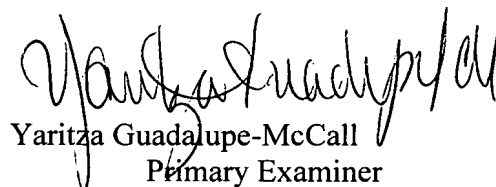 Yaritza Guadalupe-McCall
Primary Examiner